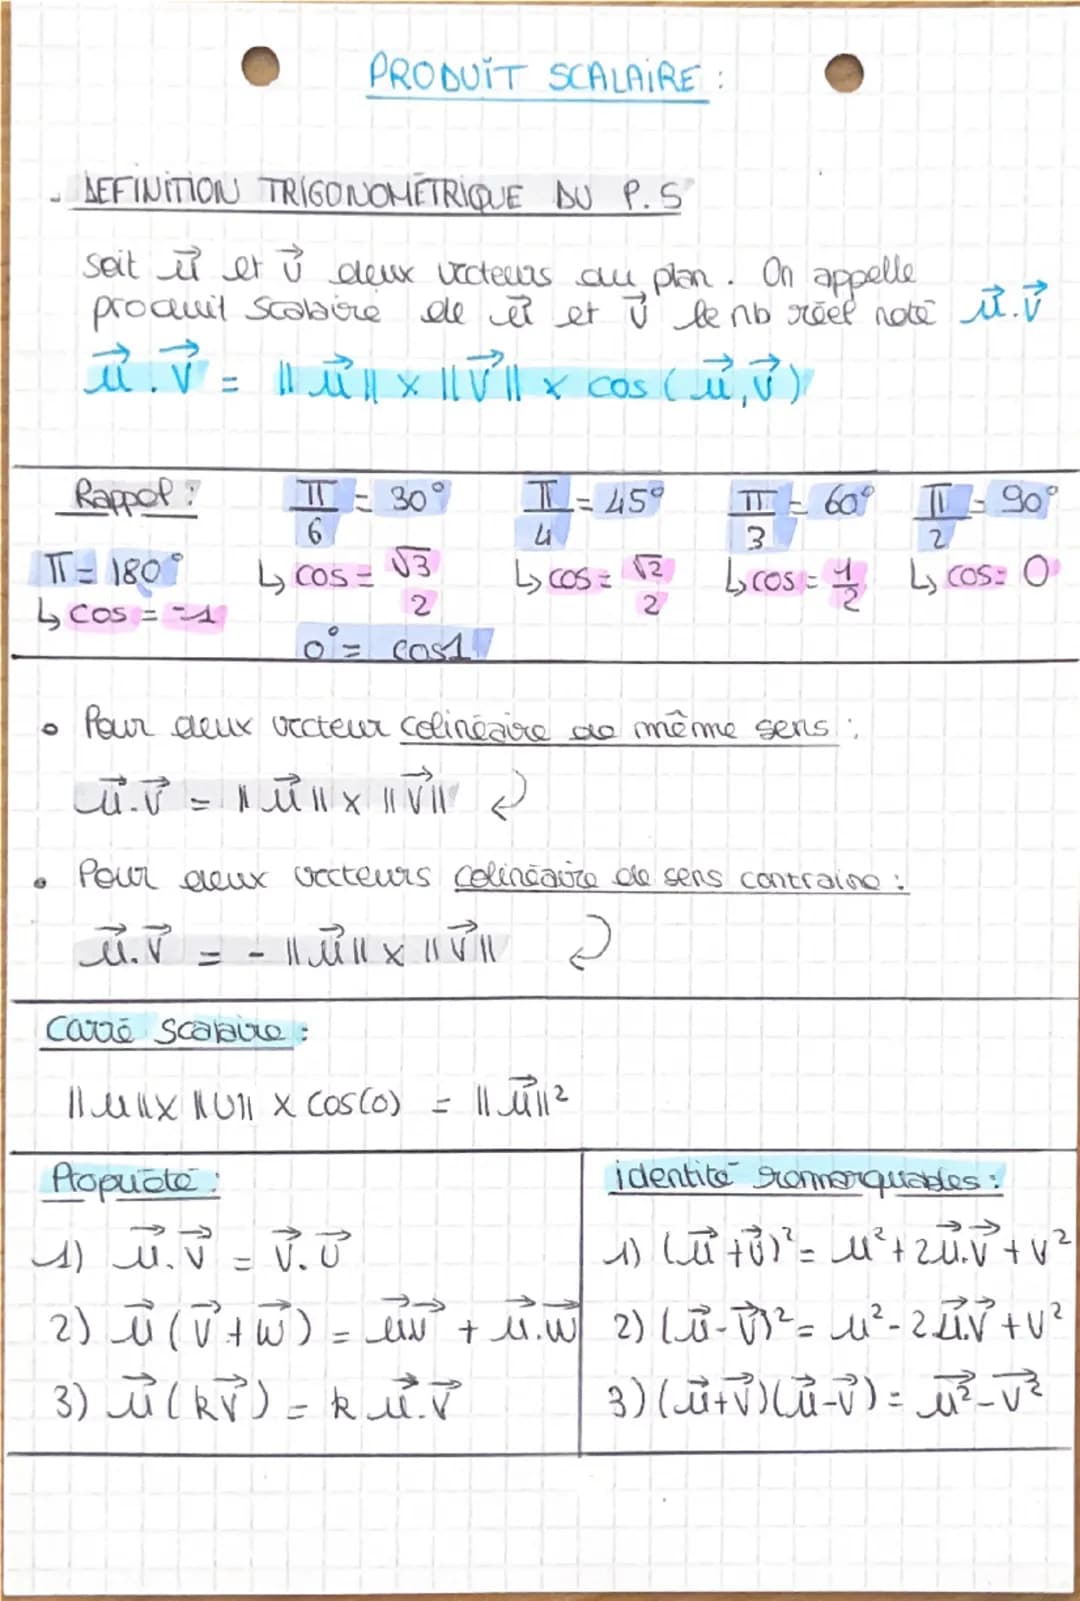 PRODUIT SCALAIRE :
- DEFINITION TRIGONOMÉTRIQUE DU P.S
soit u⃗ et v⃗ deux vecteurs du plan. On appelle
produit scalaire de u⃗ et v⃗ le nb réel noté u⃗.v⃗
u⃗.v⃗ = ||u⃗|| x ||v⃗|| x cos (u⃗,v⃗)
Rappel :
π = 180°
↳ cos = -1
π/6 = 30°
↳ cos = √3/2
0° = cos1
π/4 = 45°
↳ cos = √2/2
π/3 = 60°
↳ cos = 1/2
π/2 = 90°
↳ cos = 0
• Pour deux vecteur colinéaire de même sens :
u⃗.v⃗ = ||u⃗|| x ||v⃗||
• Pour deux vecteurs colinéaire de sens contraire :
u⃗.v⃗ = - ||u⃗|| x ||v⃗||
Carré scalaire :
||u|| x ||u|| x cos(0) = ||u⃗||²
Propriété :
1) u⃗.v⃗ = v⃗.u⃗
2) u⃗(v⃗+w⃗) = u⃗v⃗ + u⃗.w⃗
3) u⃗(kv⃗) = k u⃗.v⃗
identité remarquables :
1) (u⃗+v⃗)² = u²+2u⃗.v⃗+v²
2) (u⃗-v⃗)² = u²-2u⃗.v⃗+v²
3) (u⃗+v⃗)(u⃗-v⃗) = u⃗²-v⃗²